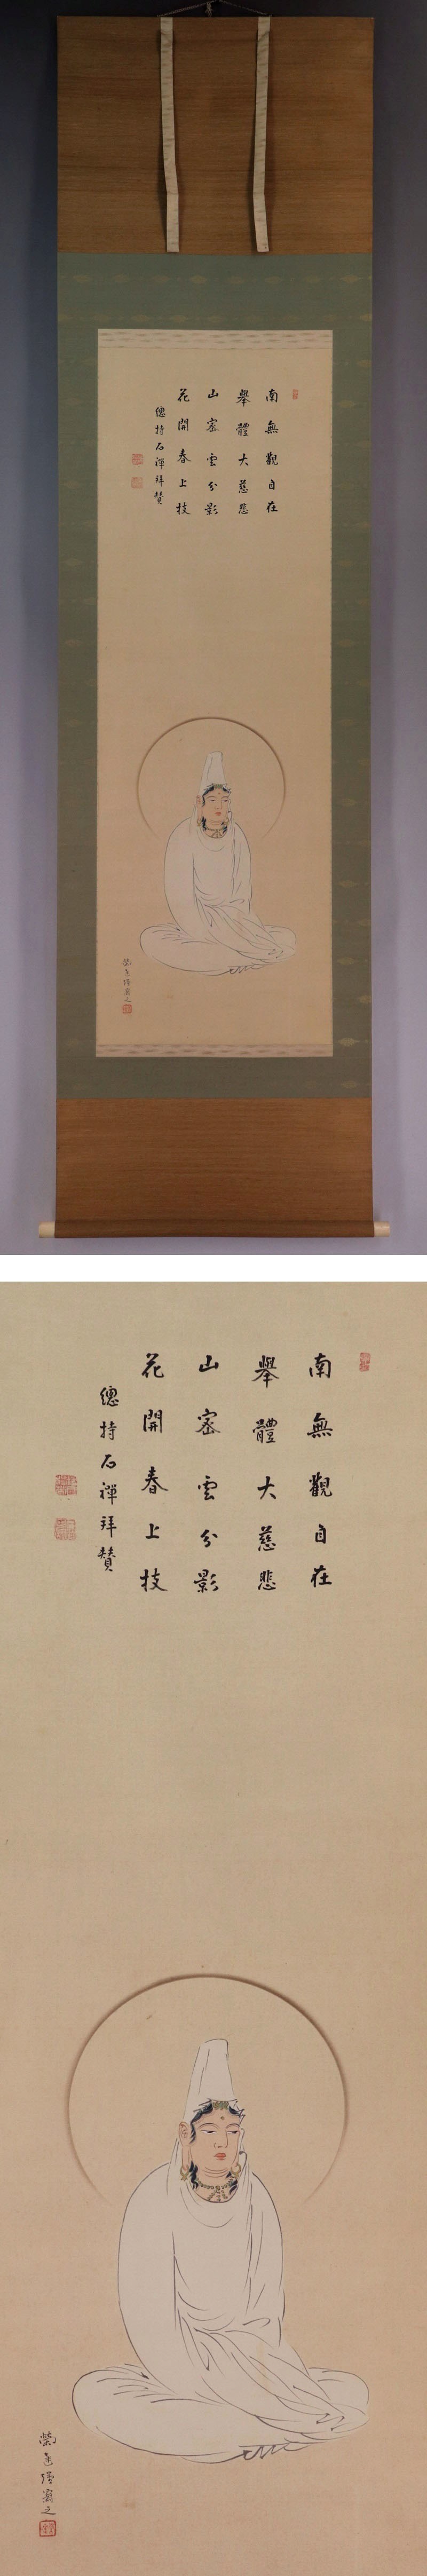 南無觀自在
舉體大慈悲
山密雲分影
花開春上技
總持石禪拜贊
南無觀自在
舉體大慈悲
山密雲分影
花開春上技
總持石禪拜贊